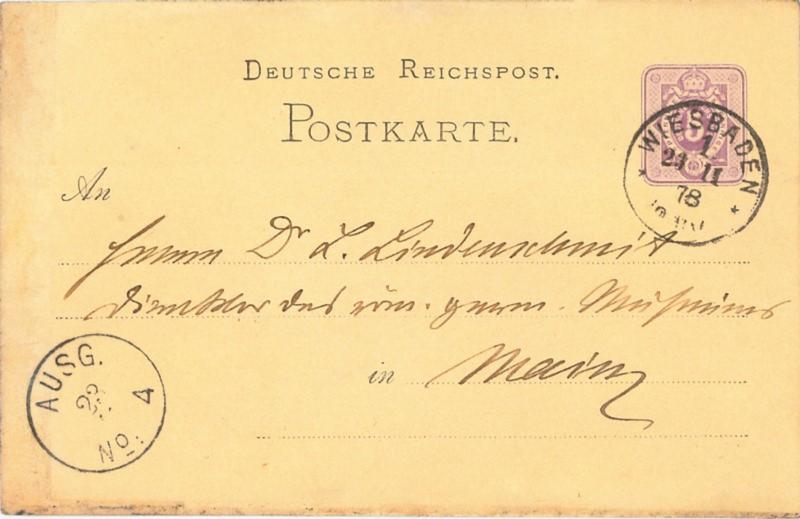 DEUTSCHE REICHSPOST.
POSTKARTE.
WIESBADEN
1
23 11
78
An
Herrn Dr L. Lindenschmit
Direktor des röm. germ. Museums
in Mainz
AUSG.
23
No. 4